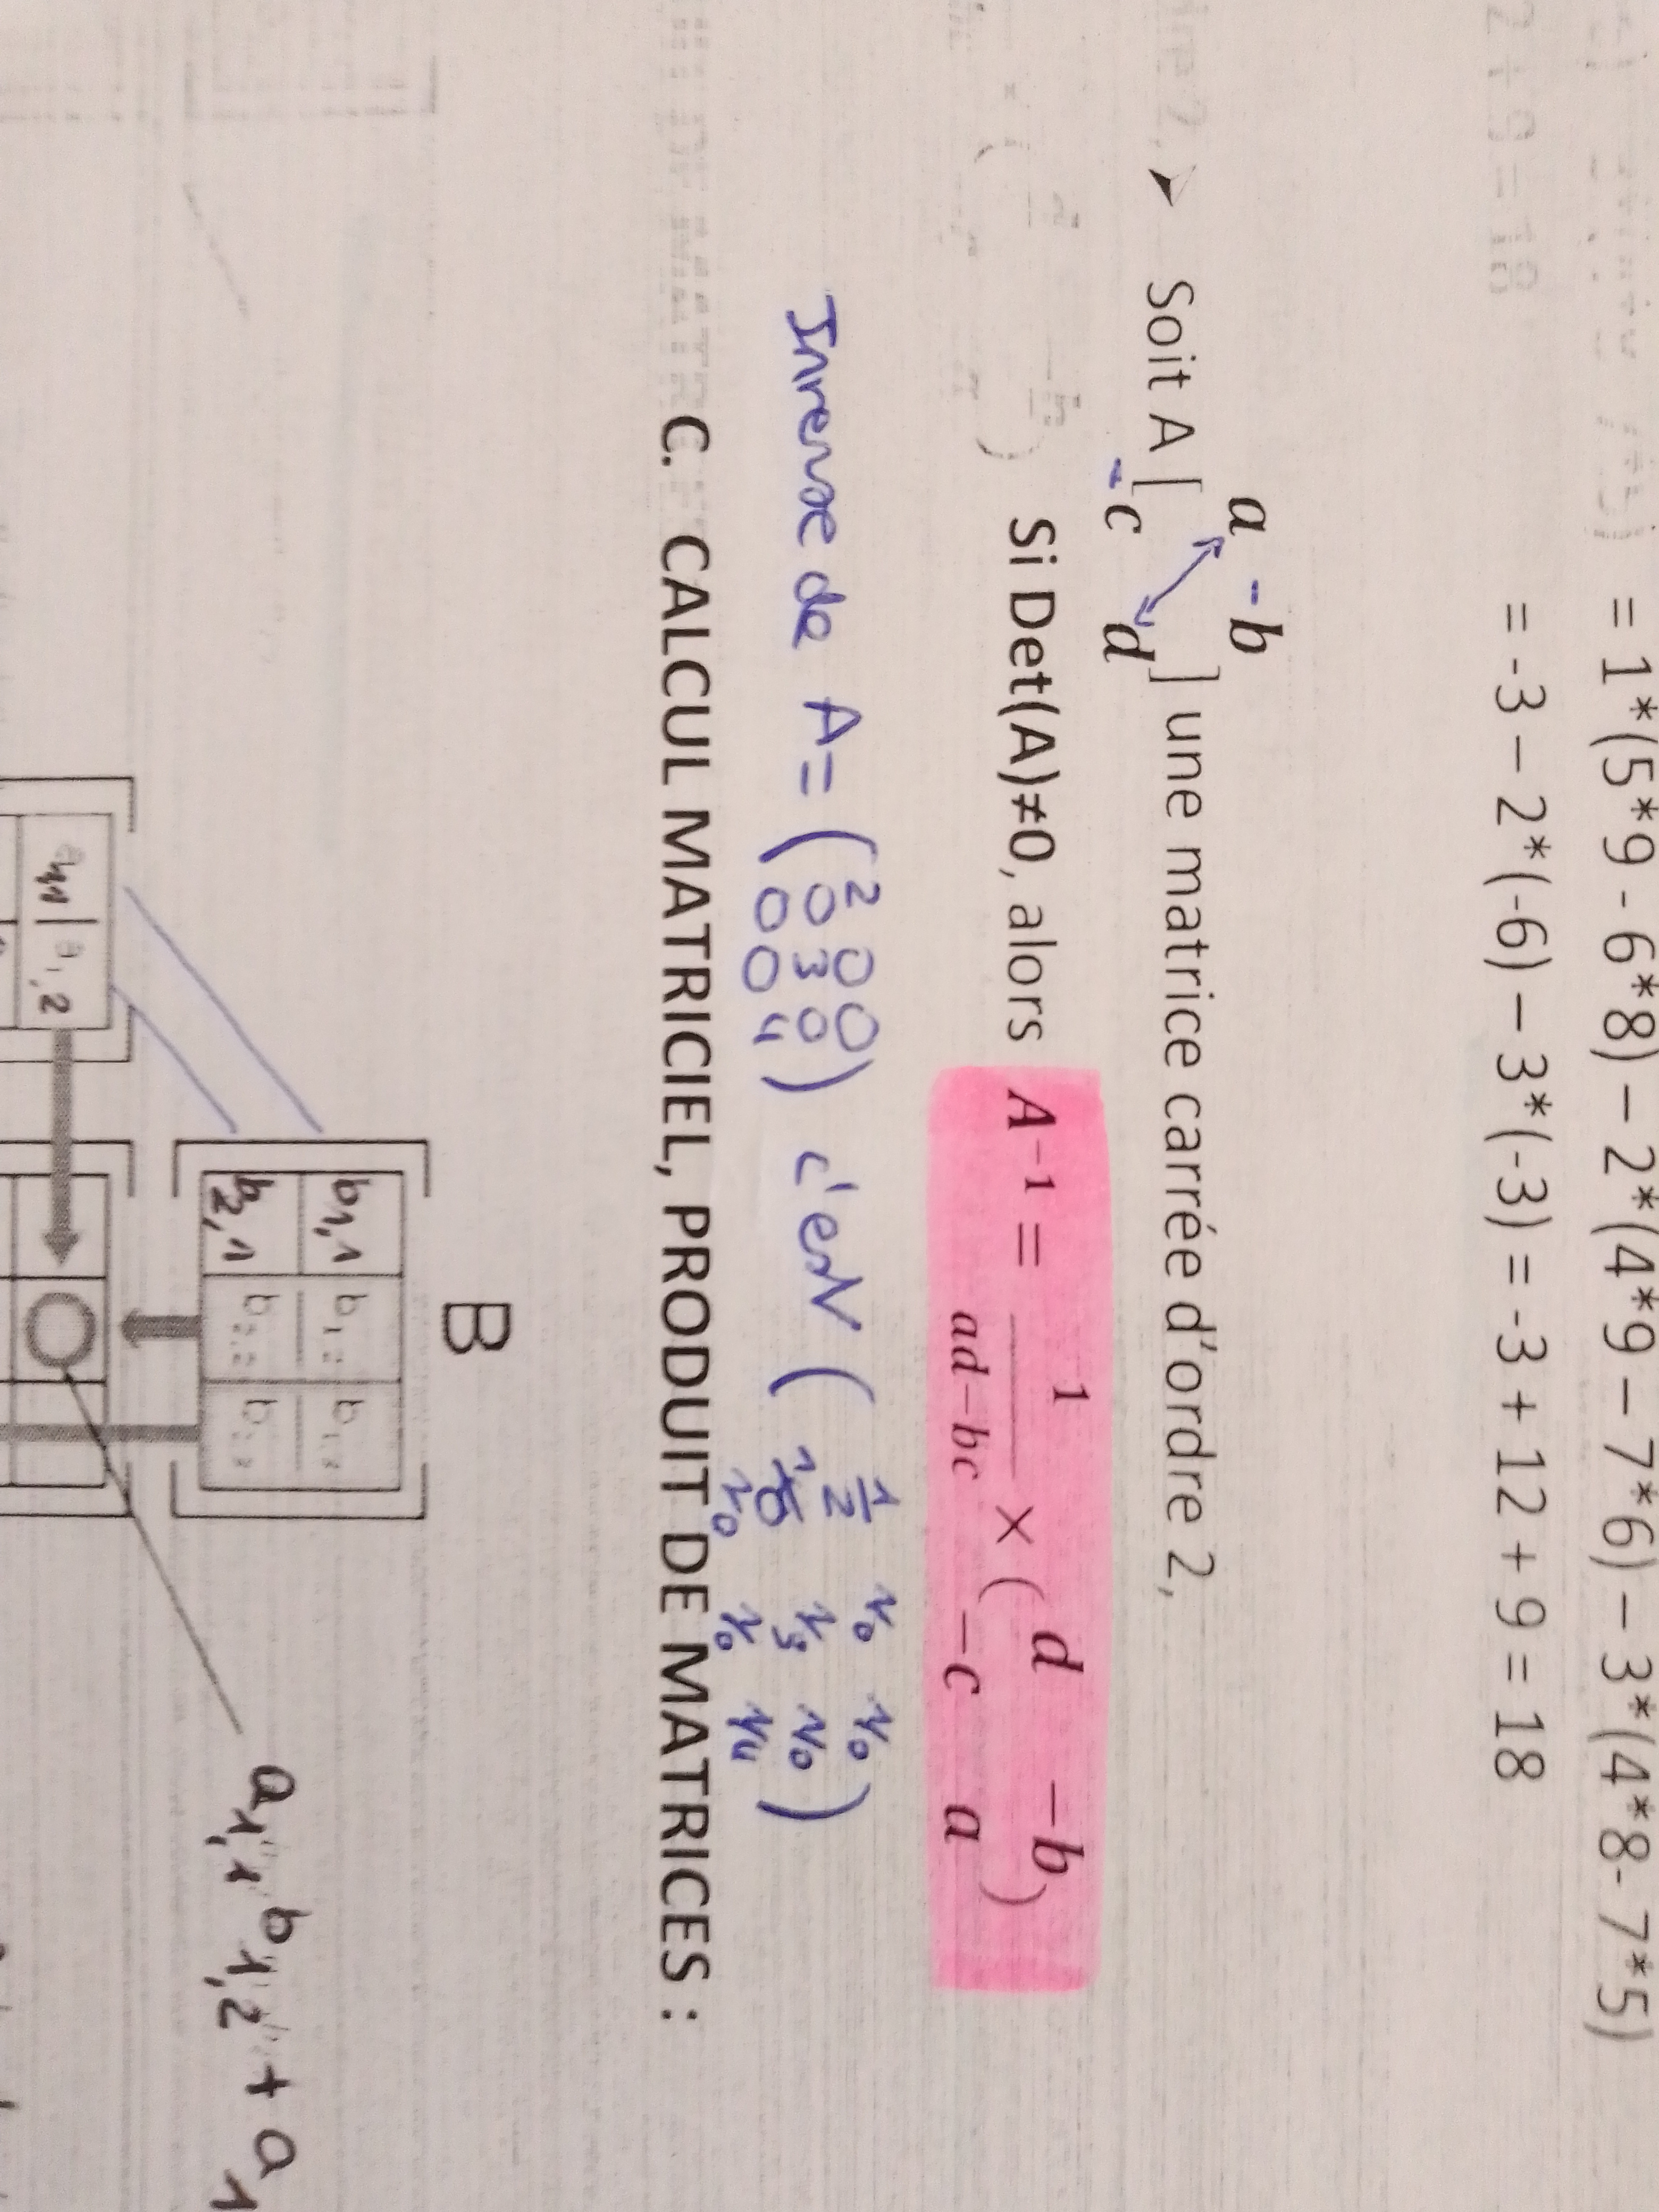 = 1*(5*9 - 6*8) – 2*(4*9 – 7*6) – 3*(4*8- 7*5)
= -3 – 2*(-6) – 3*(-3) = -3 + 12 + 9 = 18
➤ Soit A [a -b
-c d] une matrice carrée d'ordre 2,
Si Det(A)≠0, alors A⁻¹ = 1/(ad−bc) × (d −b
−c a)
Inverse de A = (2 0 0
0 3 0
0 0 4) c'est (1/2 1/0 1/0
1/0 1/3 1/0
1/0 1/0 1/4)
C. CALCUL MATRICIEL, PRODUIT DE MATRICES :
B
b1,1 b1,2 b1,3
b2,1 b2,2 b2,3
a1,1 a1,2
a1,1 b1,2 + a1